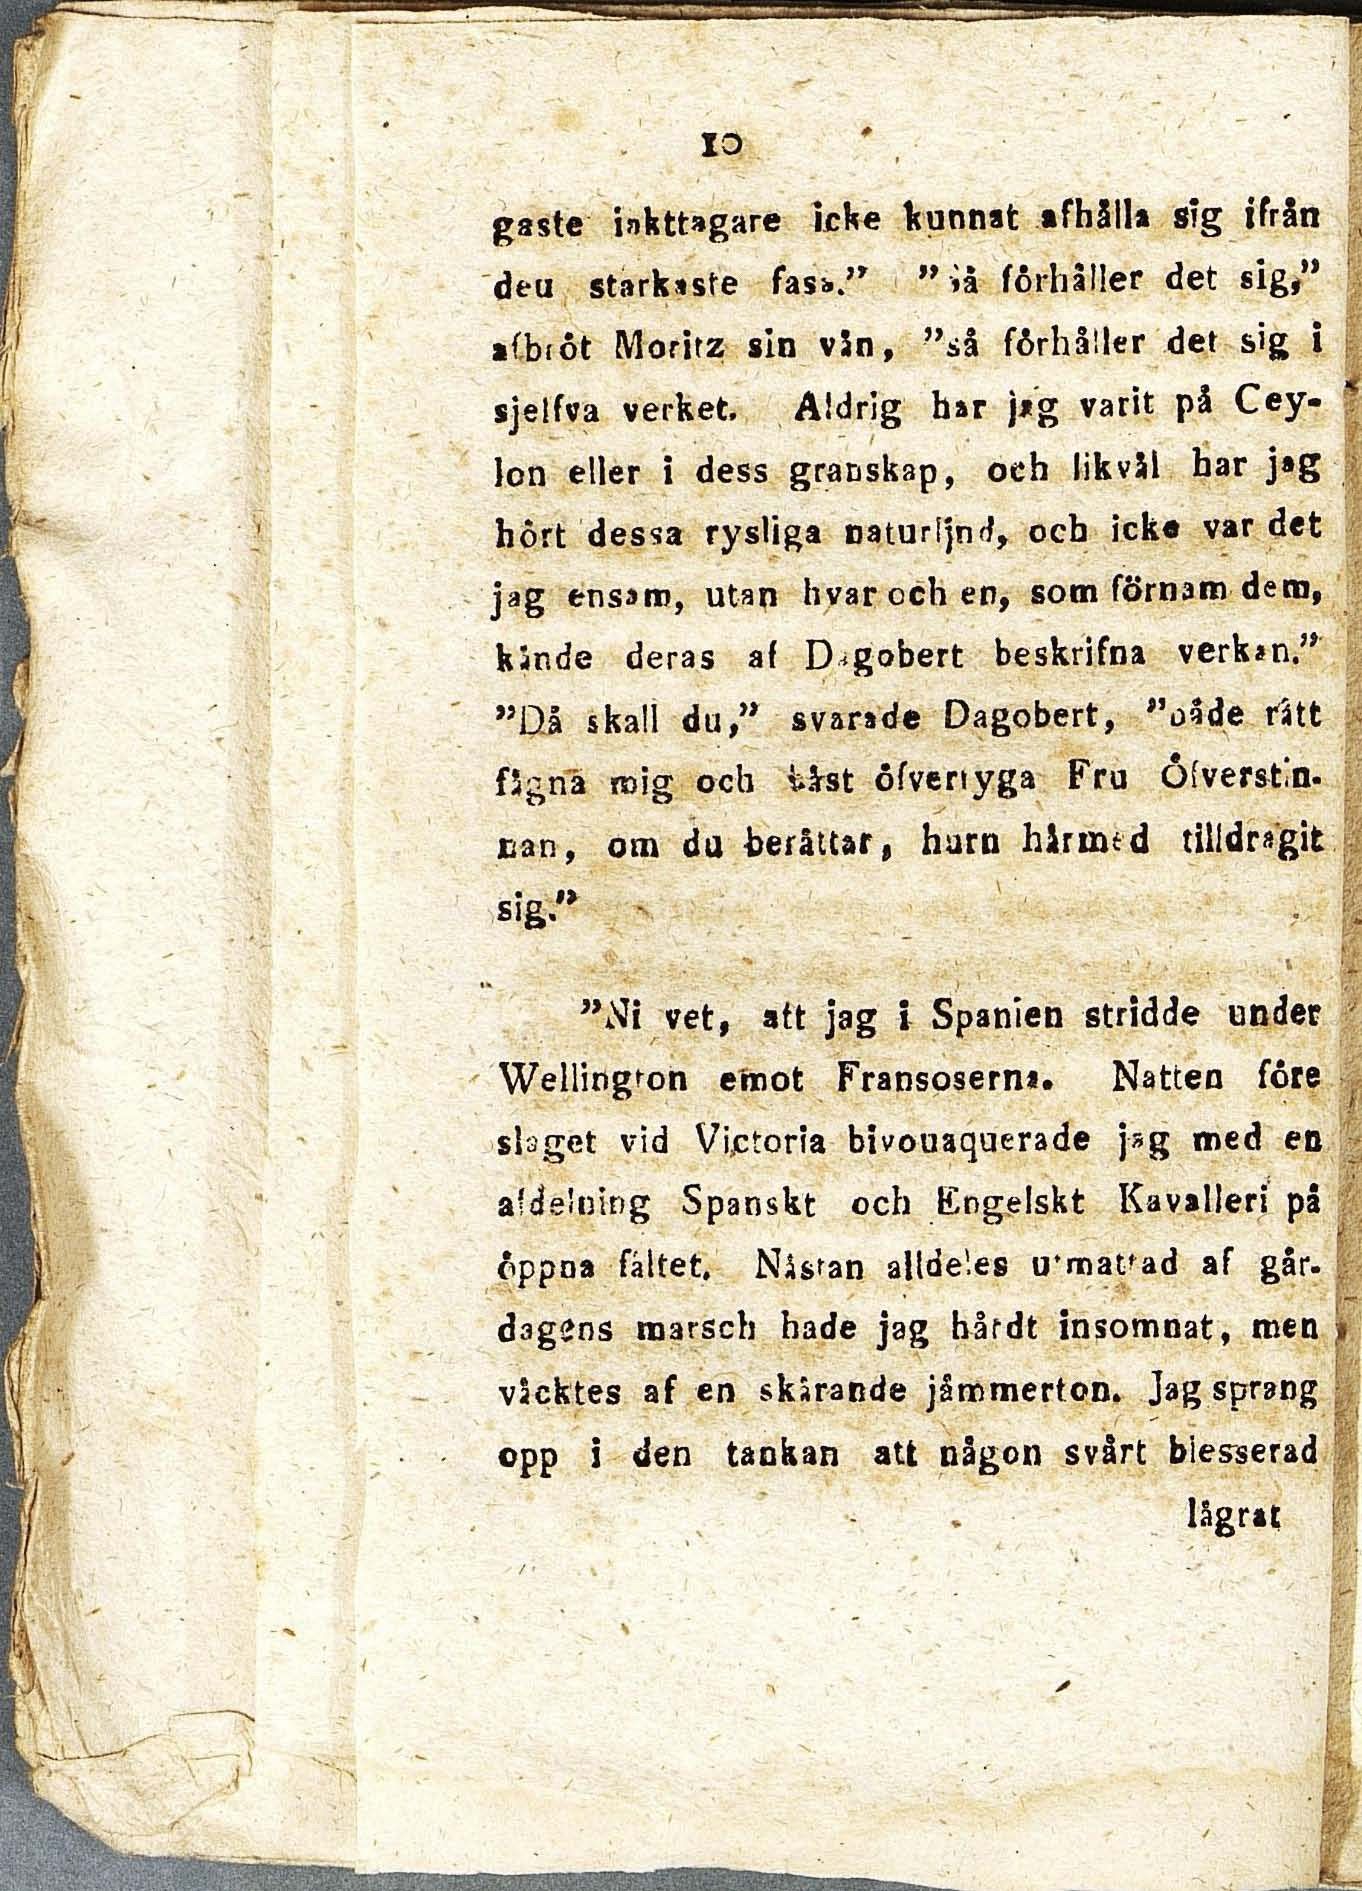 10
gaste iakttagare icke kunnat afhålla sig ifrån
deu starkaste fasa." "Så förhåller det sig,"
afbröt Moritz sin vän, "så förhåller det sig i
sjelfva verket. Aldrig har jag varit på Cey-
lon eller i dess granskap, och likväl har jag
hört dessa rysliga naturljnd, och icke var det
jag ensam, utan hvar och en, som förnam dem,
kände deras af Dagobert beskrifna verkan."
"Då skall du," svarade Dagobert, "både rätt
fägna mig och bäst öfvertyga Fru Öfverstin-
nan, om du berättar, hurn härmed tilldragit
sig."
"Ni vet, att jag i Spanien stridde under
Wellington emot Fransoserna. Natten före
slaget vid Victoria bivouaquerade jag med en
afdelning Spanskt och Engelskt Kavalleri på
öppna fältet. Nästan alldeles utmattad af går-
dagens marsch hade jag hårdt insomnat, men
väcktes af en skärande jämmerton. Jag sprang
opp i den tankan att någon svårt blesserad
lägrat